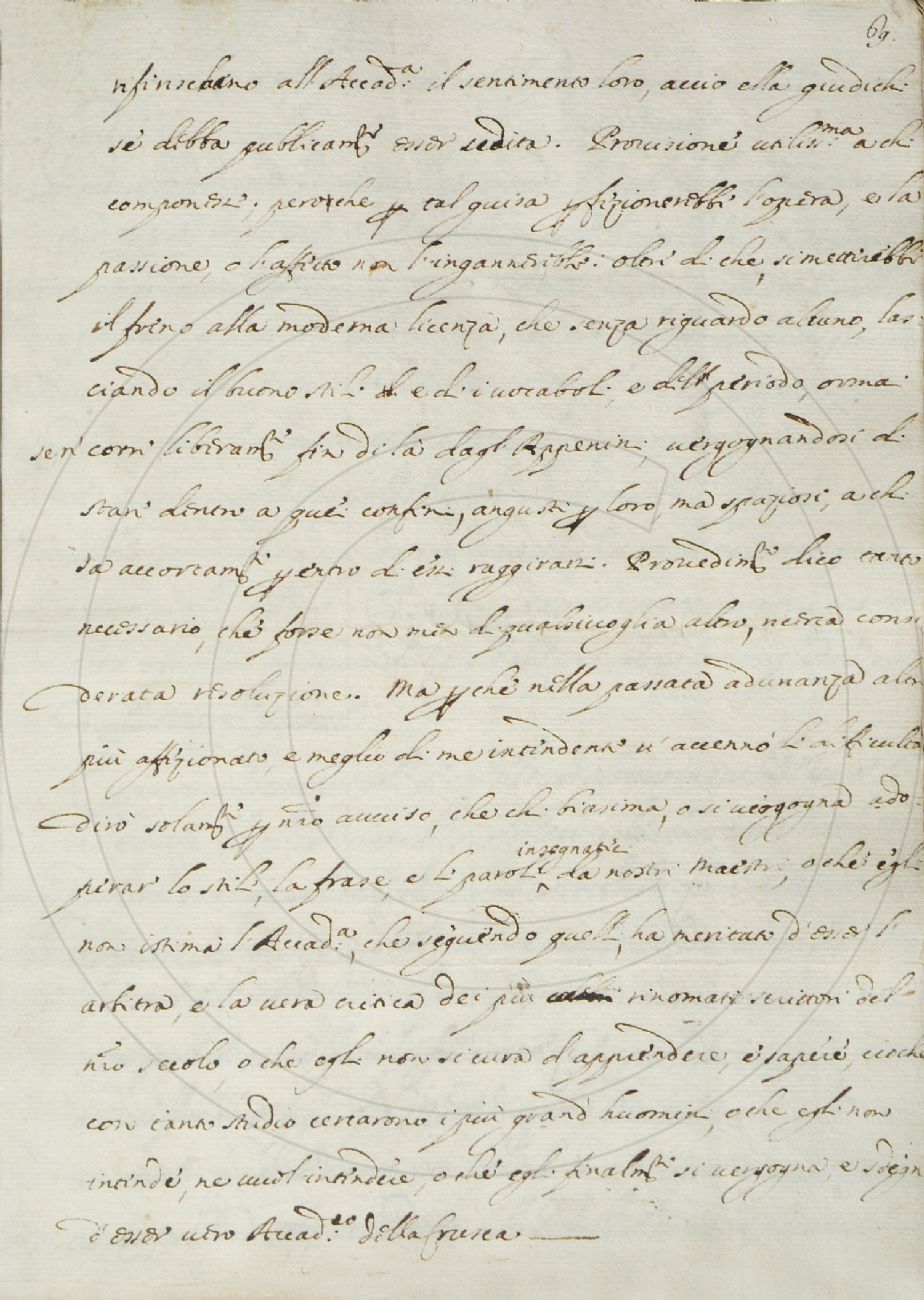 69.
riferirebbano all'Accad.a il sentimento loro, accio ella giudichi
se debba publicam.te esser udita. Provisione utiliss.ma a chi
compone; perche p tal guisa pfezionerebbe l'opera, e la
passione, o l'affetto non l'ingannerebbe: oltre di che, si metterebbe
il freno alla moderna licenza, che senza riguardo alcuno, las:
ciando il buono stile e de i vocaboli, e dell periodo, ormai
se n'corre liberam.te fin di là dagl'Appenini, vergognandosi di
stare dentro a quei confini, angusti p loro, ma spaziosi, a chi
sa accortam.te p entro di essi raggirarsi. Provedim.to dico tanto
necessario, che forse non men di qualsivoglia altro, ricerca consi
derata resoluzione. Ma pche nella passata adunanza altri
più affezionato, e meglio di me intendente v'accennò le difficultà
dirò solam.te p nr̃o avviso, che chi biasima, o si vergogna ado=
perare lo stile, la frase, e le parole insegnate da nostri Maestri, o che egli
non istima l'Accad.a, che seguendo quelli, ha meritato d'esser l'
arbitra, e la vera critica dei più rinomati scrittori del
nr̃o secolo, o che egli non si cura d'apprendere, e sapere, cioche
con tanto studio cercarono i più grand'huomini, o che egli non
intende, ne vuol intendere, o che egli finalm.te si vergogna, e sdegna
d'esser vero Accad.co della Crusca